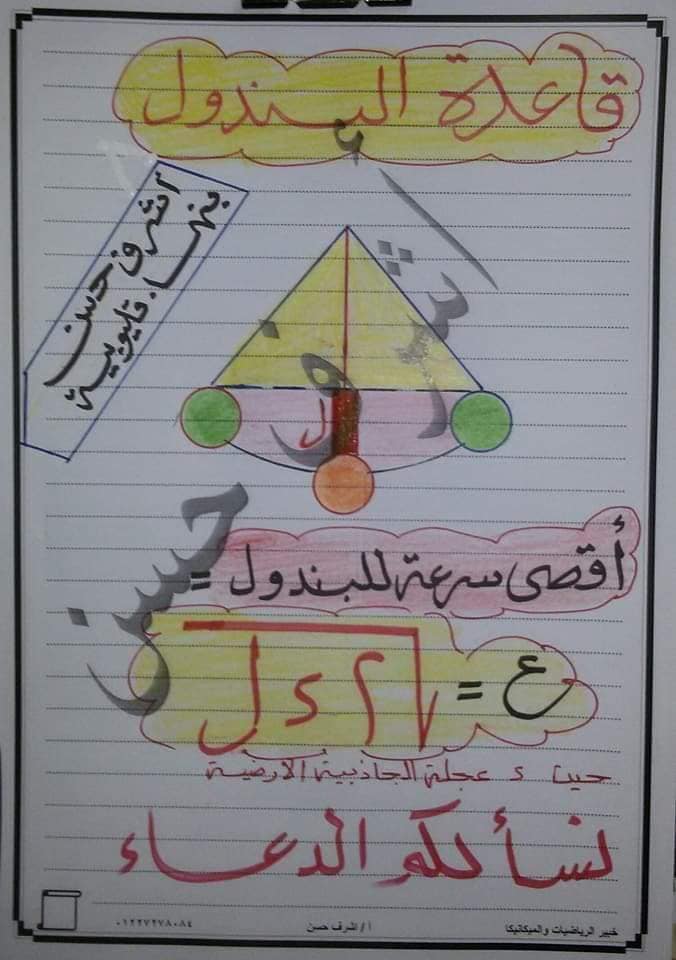 قاعدة البندول
أشرف حسن
بنها. قليوبية
أشرف حسن
ل
أقصى سرعة للبندول =
ع = √٢ء ل
حيث ء عجلة الجاذبية الأرضية
نسألكم الدعاء
خبير الرياضيات والميكانيكا
أ / اشرف حسن
٠١٢٢٧٢٧٨٠٨٤